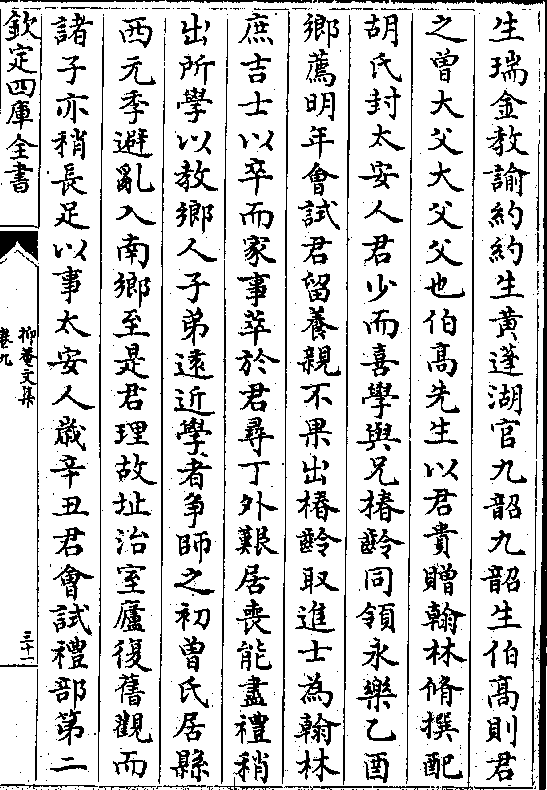 生瑞金教諭約約生黄蓬湖官九韶九韶生伯髙則君
之曽大父大父父也伯髙先生以君貴贈翰林脩撰配
胡氏封太安人君少而喜學與兄椿齡同領永樂乙酉
鄉薦明年會試君留養親不果出椿齡取進士為翰林
庶吉士以卒而家事萃於君尋丁外艱居喪能盡禮稍
出所學以教鄉人子弟逺近學者争師之初曽氏居縣
西元季避亂入南鄉至是君理故址治室廬復舊觀而
諸子亦稍長足以事太安人歲辛丑君會試禮部第二
欽定四庫全書
抑菴文集
卷九
三十一